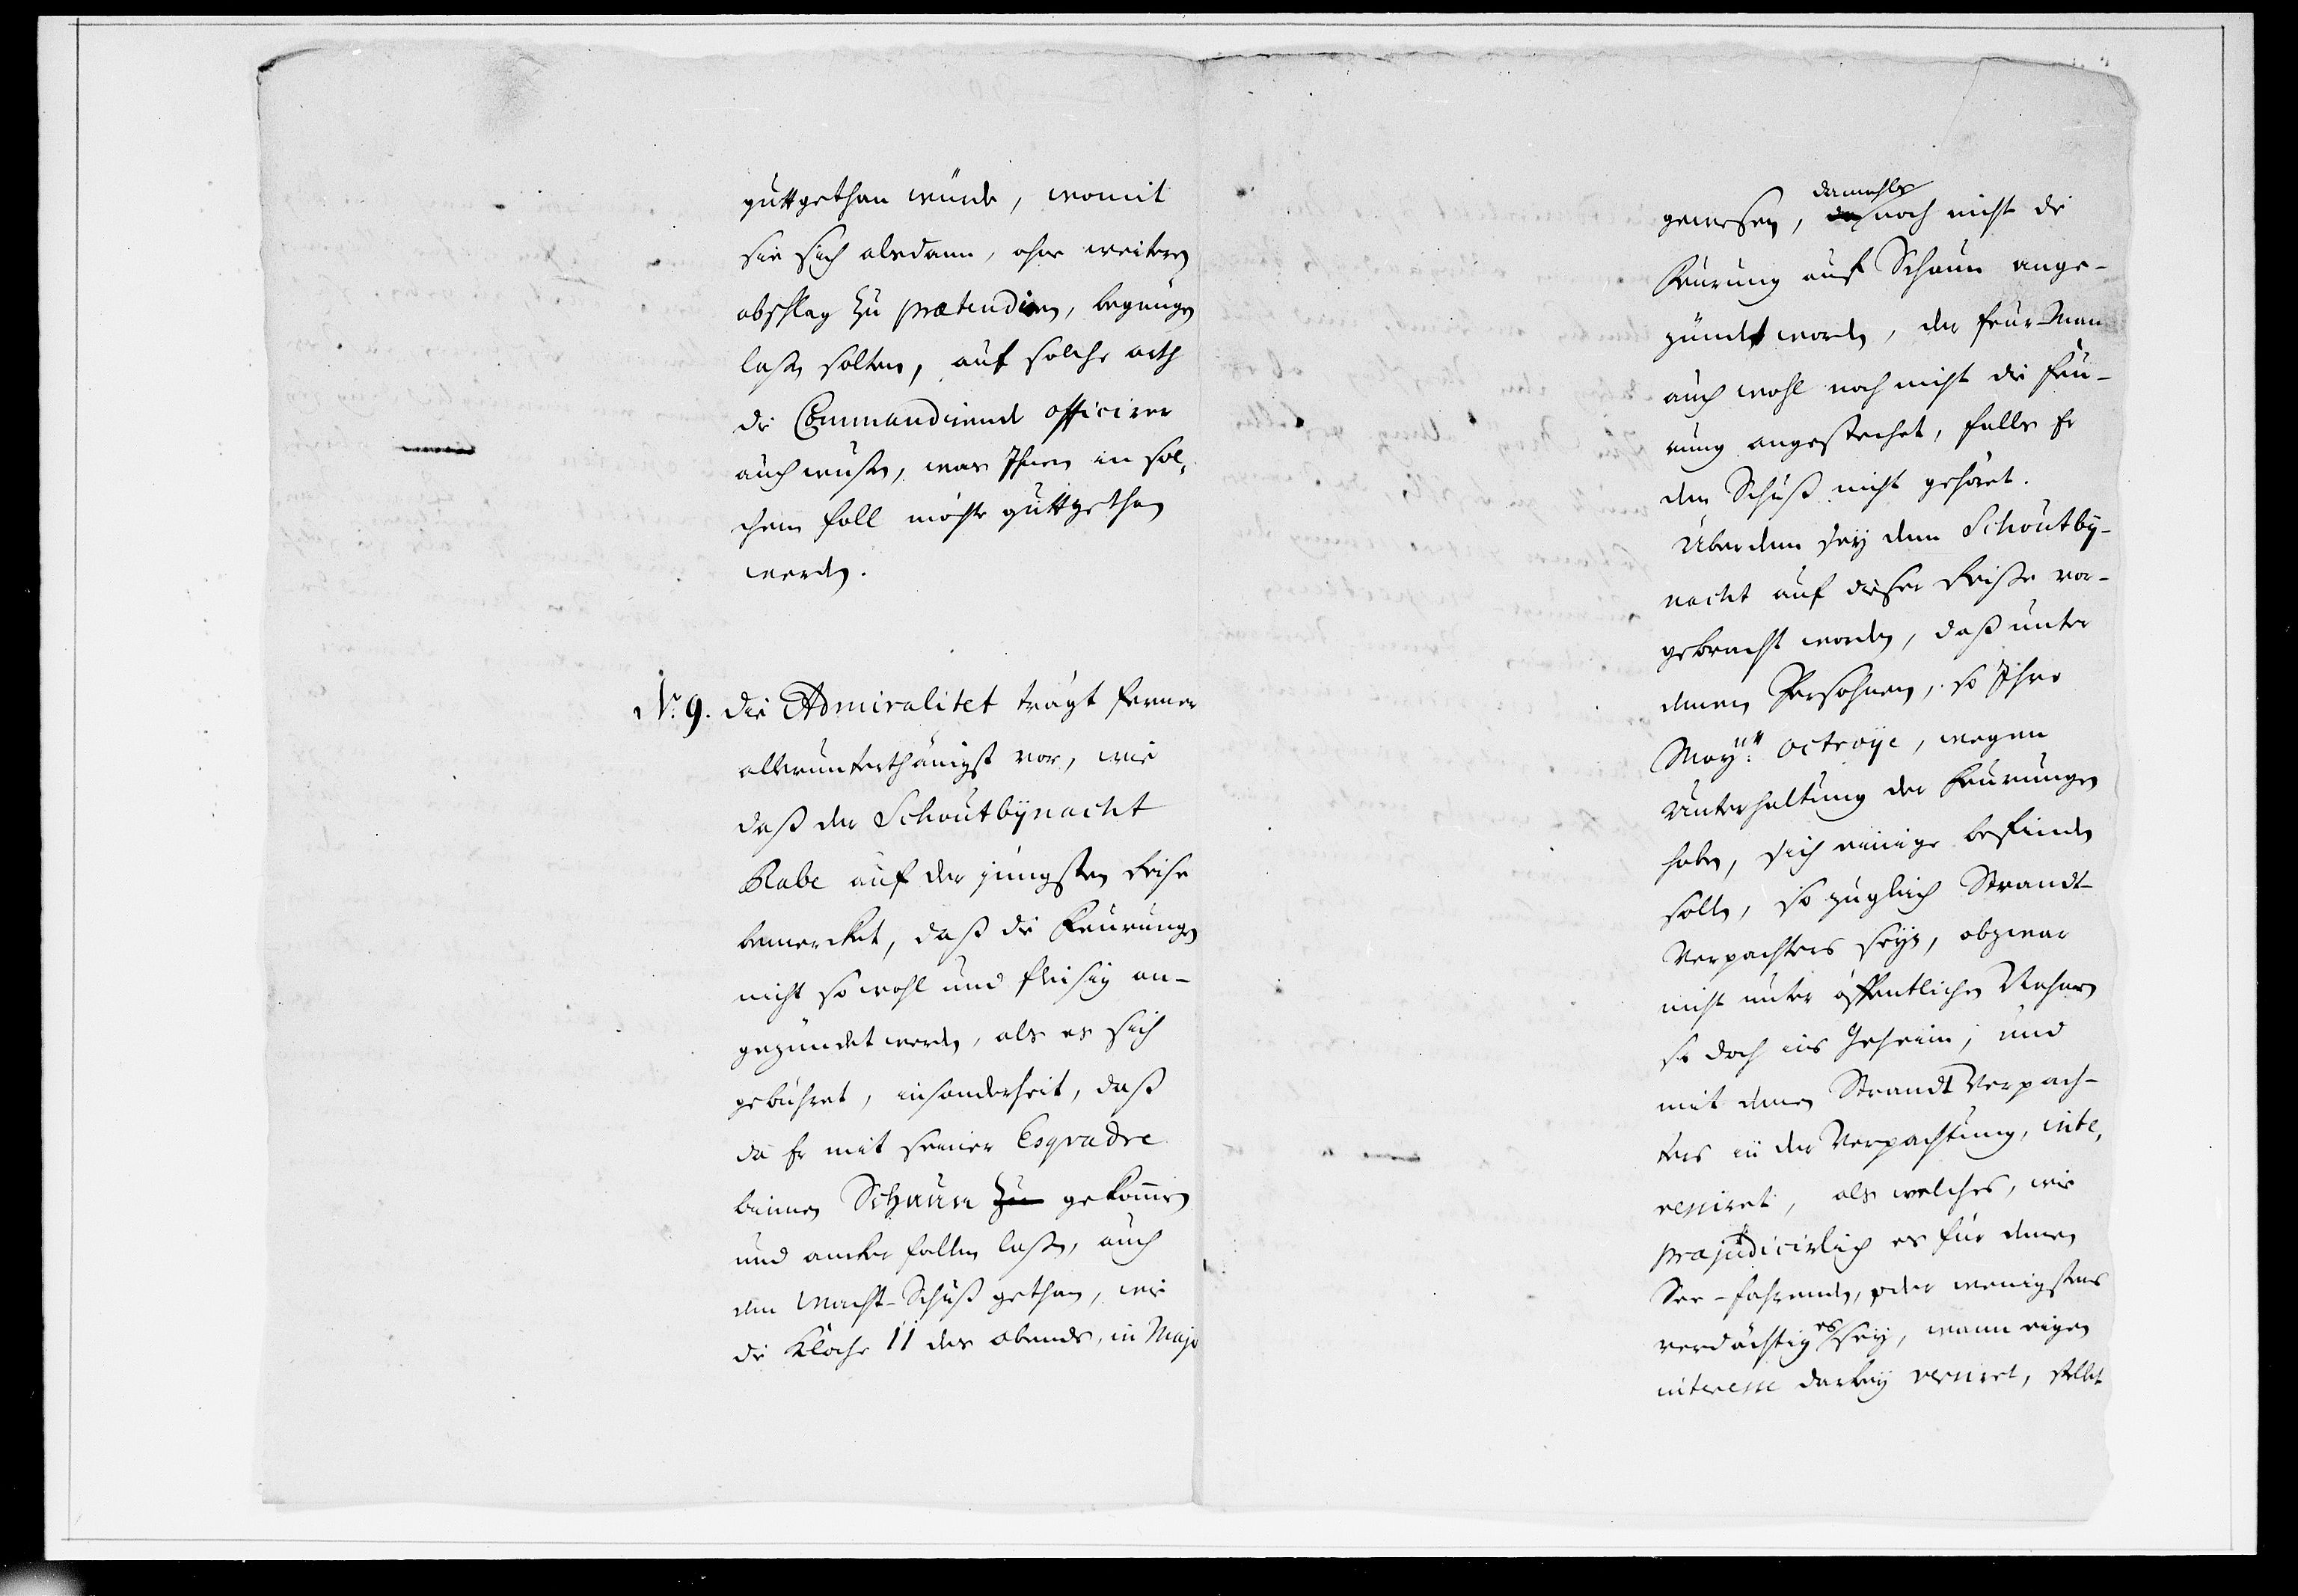 guttgethan würde, womit
sie sich alsdann, ohne weitern
abschlag zu prætendiren, begnügen
laßen solten, auf solche arth
die Commandirende officirer
auch wusten, was Ihnen in sol¬
chem fall möchte guttgethan
werden.
No. 9. Die Admiralitet trägt ferner
allerunterthänigst vor, wie
daß der Schoutbÿnacht
Rabe auf der jüngsten Reise
bemercket, daß die Feurungen
nicht so wohl und fleisig an-
gezündet werden, als es sich
gebühret, insonderheit, daß
da Er mit seiner Esqvadre
binnen Schaun zu gekommen
und ancker fallen laßen, auch
den Wacht-Schuß gethan, wie
die Klocke 11 des abends, in Majo
gewesen, damahls noch nicht die
Feurung auf Schaun ange-
zündet worden, der feur-Man
auch wohl noch nicht die feu-
rung angestechet, falls Er
den Schuß nicht gehöret.
Uberdem seÿ dem Schoutbÿ-
nacht auf dieser Reise vor-
gebracht worden, daß unter
denen Persohnen, so Ihro
Maytt. octroÿe, wegen
Unterhaltung der Feurungen
haben, sich einige befinden
sollen, so zugleich Strandt-
Verpachters seÿn, obzwar
nicht unter öffentlichen Nahmen
so doch ins Geheim, und
mit denen Strandt Verpach-
ters in der Verpachtung, inte¬
ressiret, als welches, wie
præjudicirlich es für denen
See-fahrenden, oder wenigstens
verdächtig es seÿ, wenn eigen
interesse darbeÿ versiret, stellet